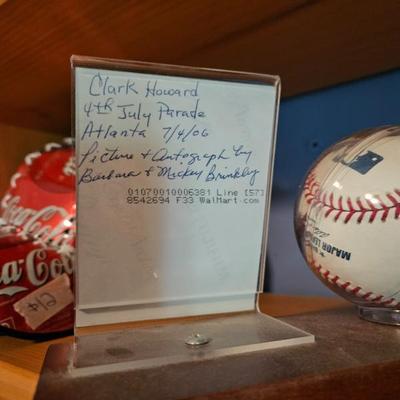 Clark Howard
4th July Parade
Atlanta 7/4/06
Picture & Autograph by
Barbara & Mickey Brinkley
01070010006381 Line [57]
8542694 F33 WalMart.com
Coca-Cola
$12
MAJOR LEAGUE